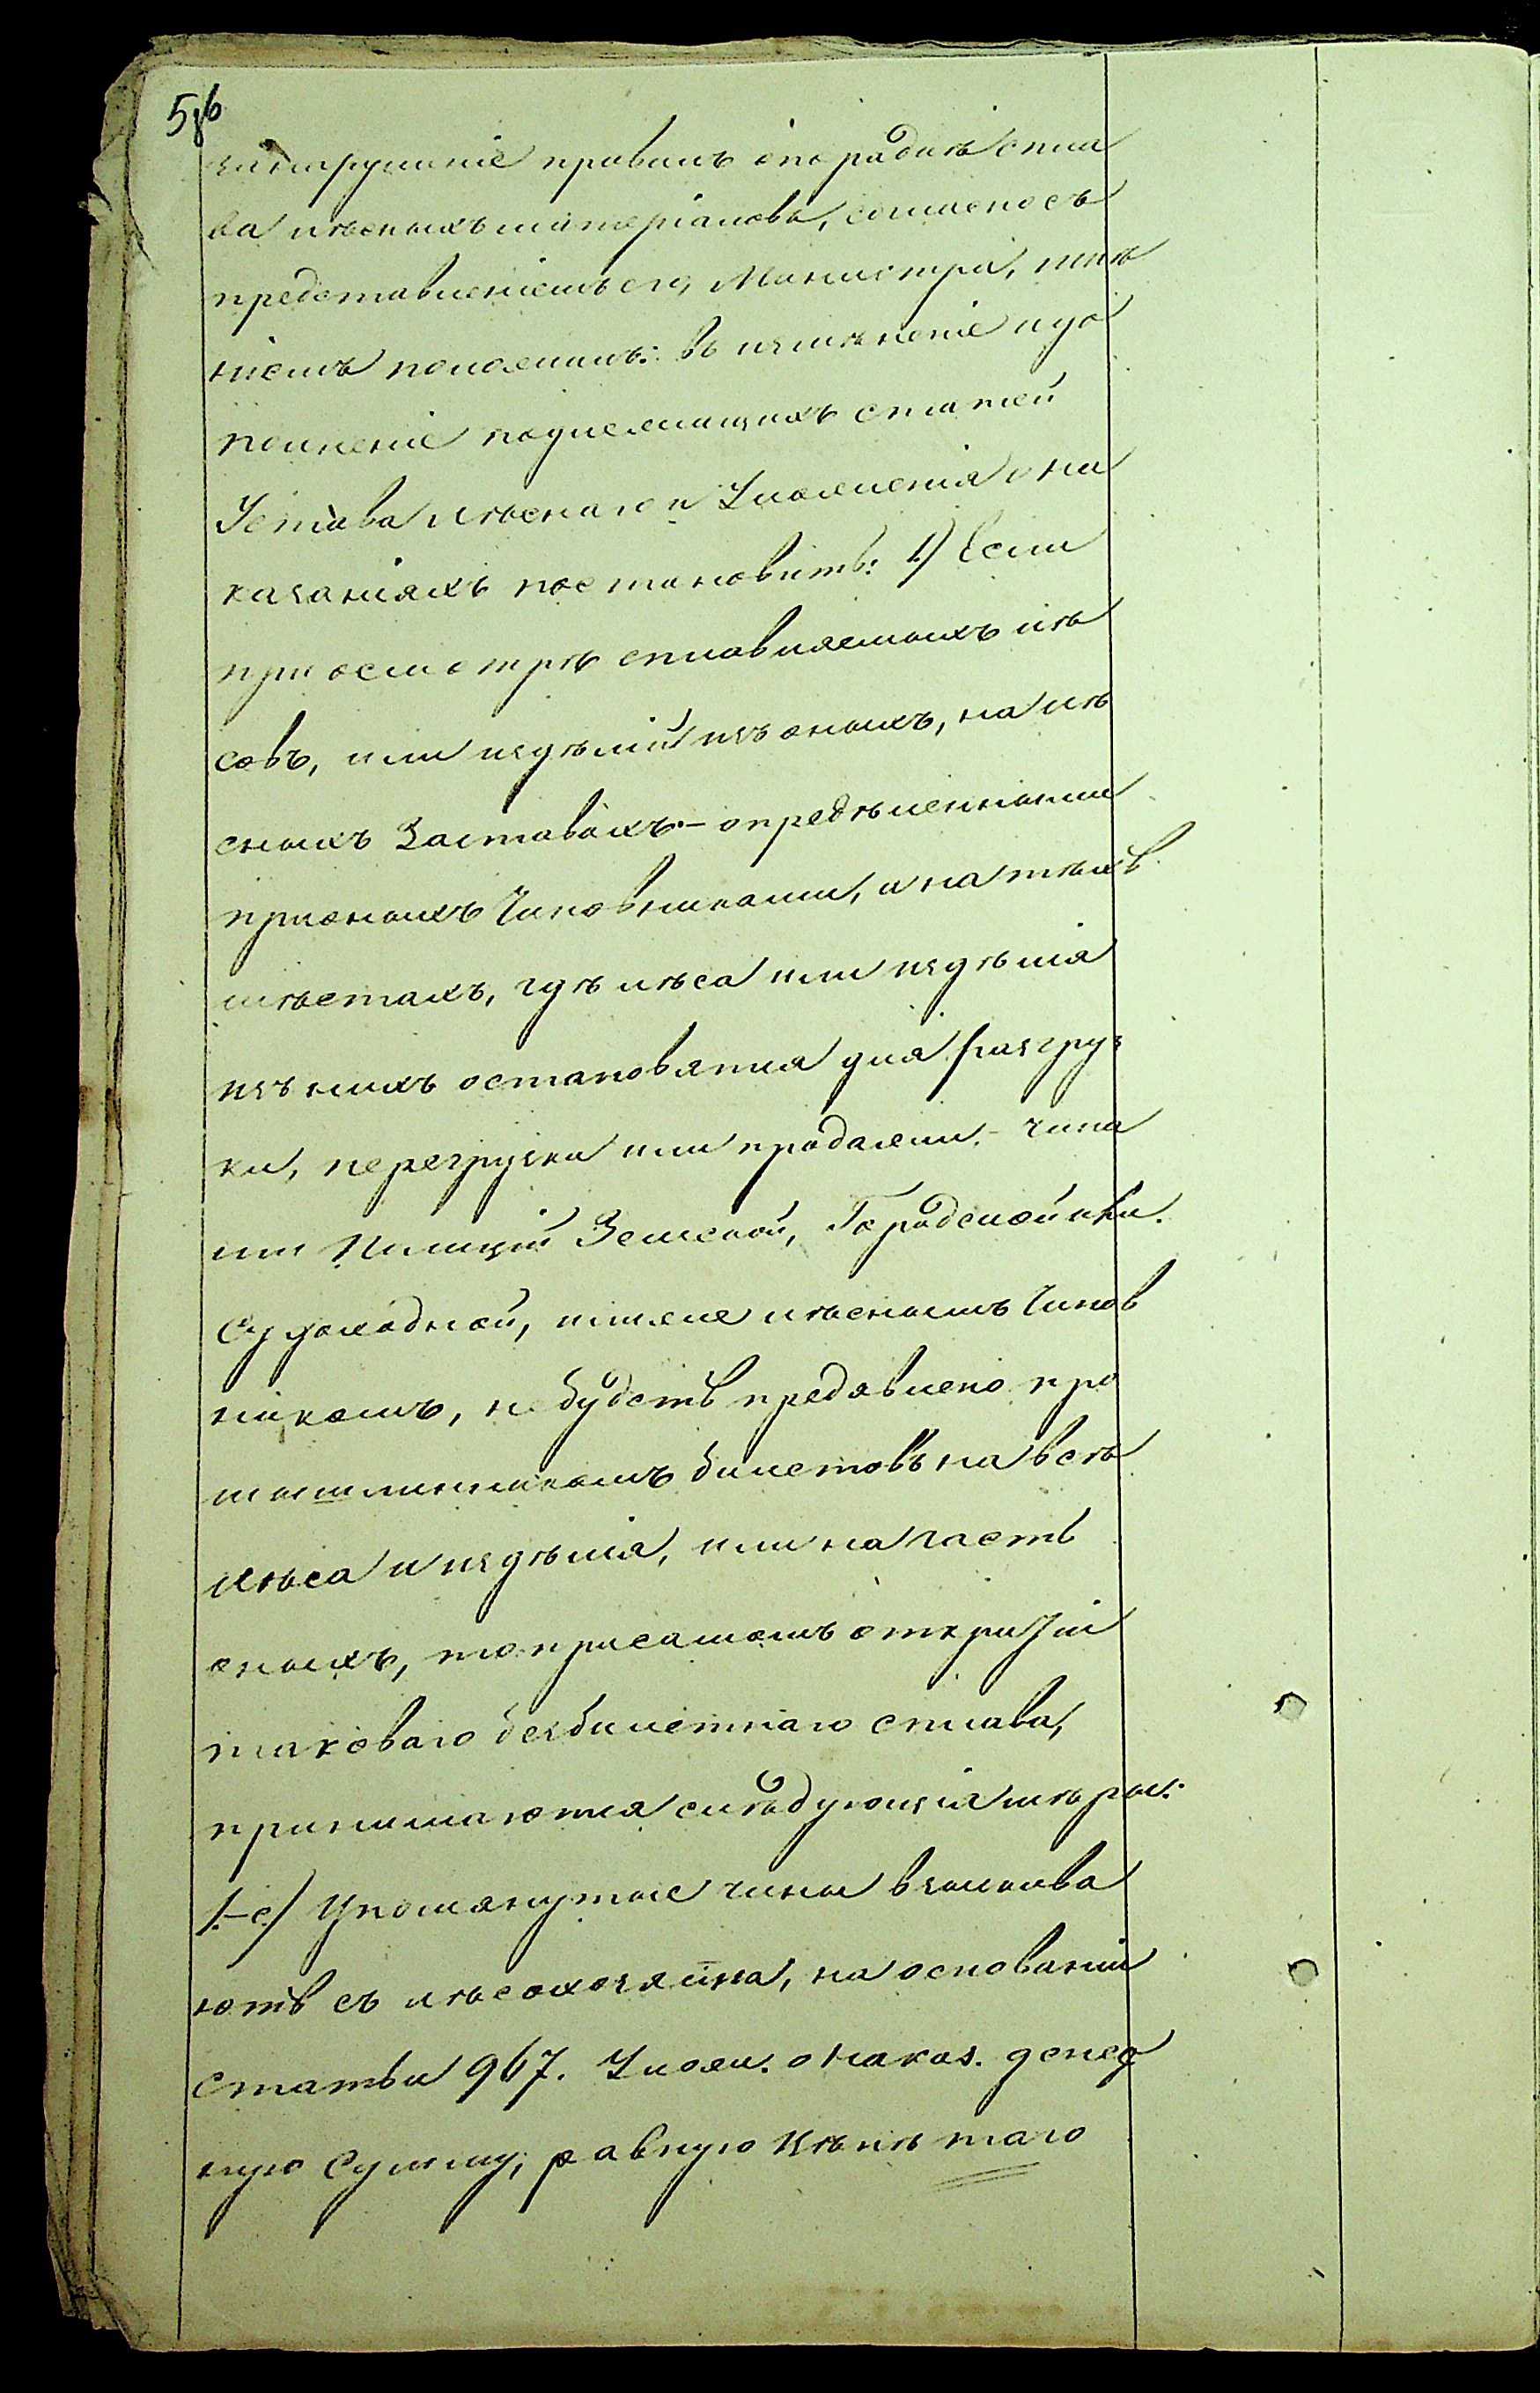 586
занарушеніе правилъ опорядкѣ спла
ва лѣсныхъ матеріаловъ, согласно съ
представленіемъ его, Министра, мнѣ
ніемъ положилъ: въ измѣненіе и до
полненіе подлежащихъ статей
Устава лѣснаго и Уложенія о на
казаніяхъ постановить: 1.) Если
при осмотрѣ сплавляемыхъ лѣ
совъ, или издѣлій изъ оныхъ, на лѣ
сныхъ Заставахъ – опредѣленными
при оныхъ Чиновниками, и на тѣхъ
мѣстахъ, гдѣ лѣса или издѣлія
изъ нихъ остановятся для разгруз
ки, перегрузки или продажи – чина
ми Полиціи Земской, Городской или
Судоходной, также лѣснымъ Чинов
никомъ, не будетъ предявлено про
мышленникомъ билетовъ на всѣ
лѣса и издѣлія, или на часть
оныхъ, то при самомъ открытіи
таковаго безбилетнаго сплава,
принимаются слѣдующія мѣры:
1.–е) Упомянутые чины взыскива
ютъ съ лѣсохозяина, на основаніи
статьи 967. Улож. о наказ. денеж
ную Сумму, равную цѣнѣ того